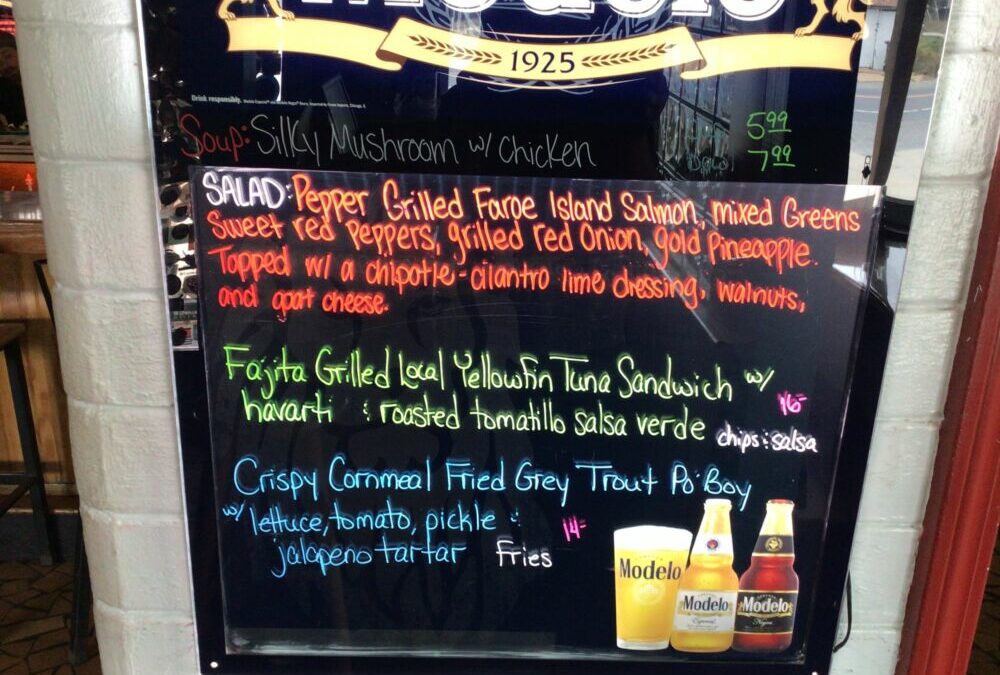 Modelo
1925
Drink responsibly.
Soup: Silky Mushroom w/ Chicken
5.99
Bowl 7.99
SALAD: Pepper Grilled Faroe Island Salmon, mixed Greens
Sweet red Peppers, grilled red Onion, gold Pineapple.
Topped w/ a chipotle-cilantro lime dressing, walnuts,
and goat cheese.
Fajita Grilled Local Yellowfin Tuna Sandwich w/
havarti & roasted tomatillo salsa verde
16-
chips & salsa
Crispy Cornmeal Fried Grey Trout Po' Boy
w/ lettuce, tomato, pickle &
jalapeno tartar
14-
Fries
Modelo
Modelo
Especial
Modelo
Negra